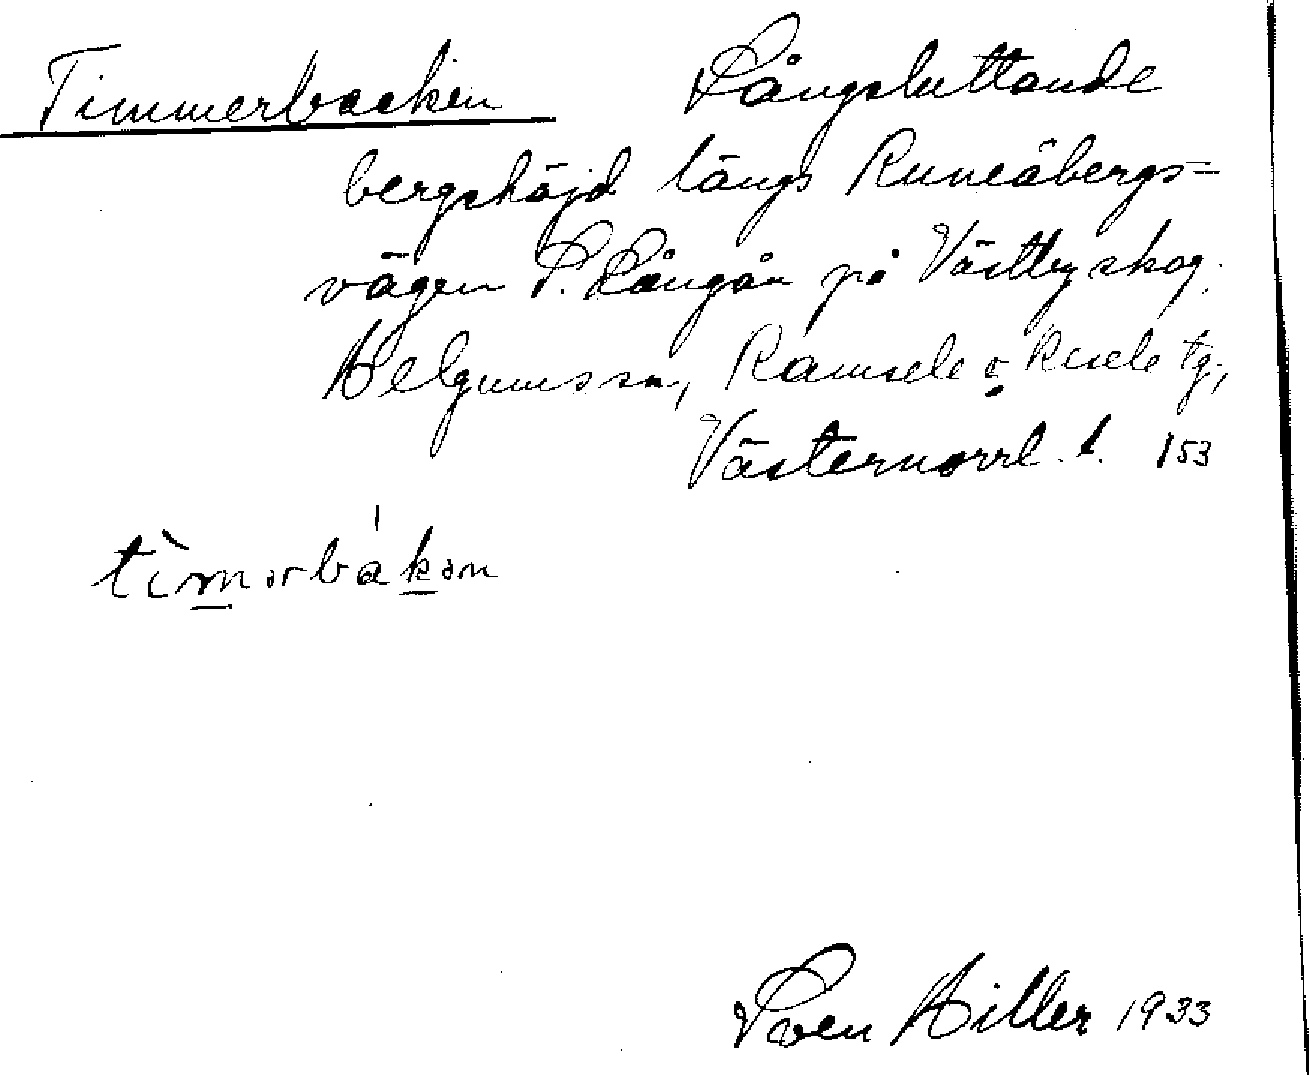 Timmerbacken Långsluttande
bergshöjd längs Runeåbergs=
vägen S. Långån på Västby skog.
Helgums sn, Ramsele o. Resele tg.,
Västernorrl. l. 153
tìmərbákən
Sven Hiller 1933